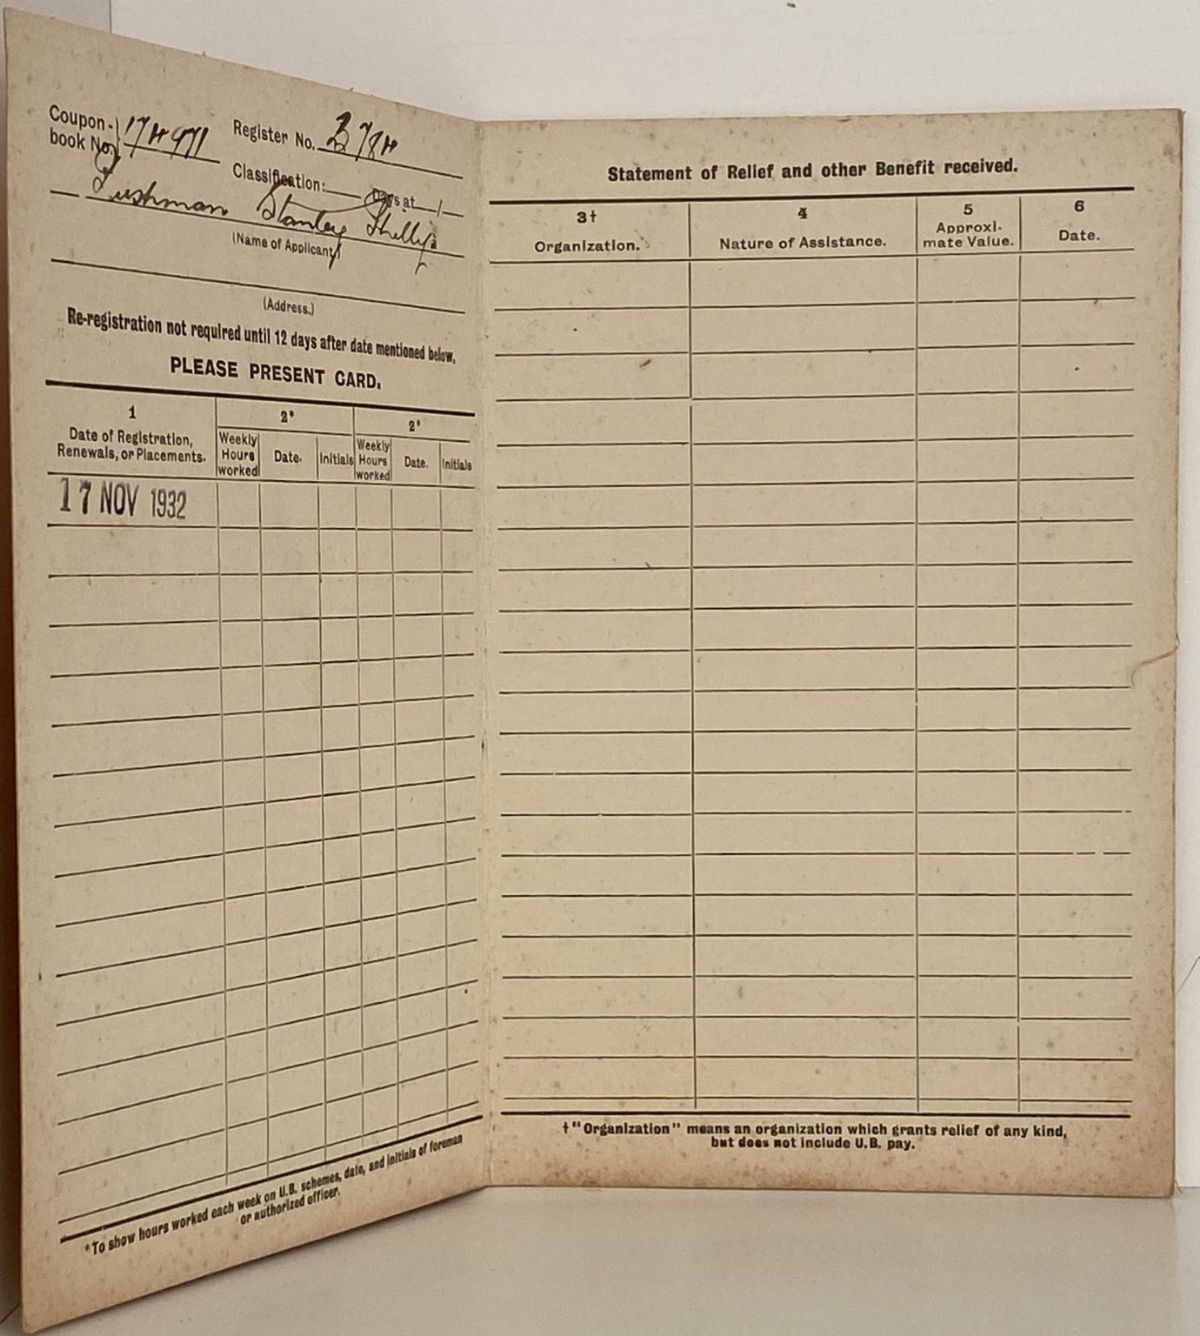 Coupon- book No. 174971 Register No. 3784
Classification: Days at /
Lushman Stanley Phillip
(Name of Applicant)
(Address.)
Re-registration not required until 12 days after date mentioned below.
PLEASE PRESENT CARD.
1 2* 2*
Date of Registration, Renewals, or Placements. Weekly Hours worked Date. Initials Weekly Hours worked Date. Initials
17 NOV 1932
*To show hours worked each week on U.B. schemes, date, and initials of foreman
or authorized officer.
Statement of Relief and other Benefit received.
3† 4 5 6
Organization. Nature of Assistance. Approxi- mate Value. Date.
†"Organization" means an organization which grants relief of any kind,
but does not include U.B. pay.